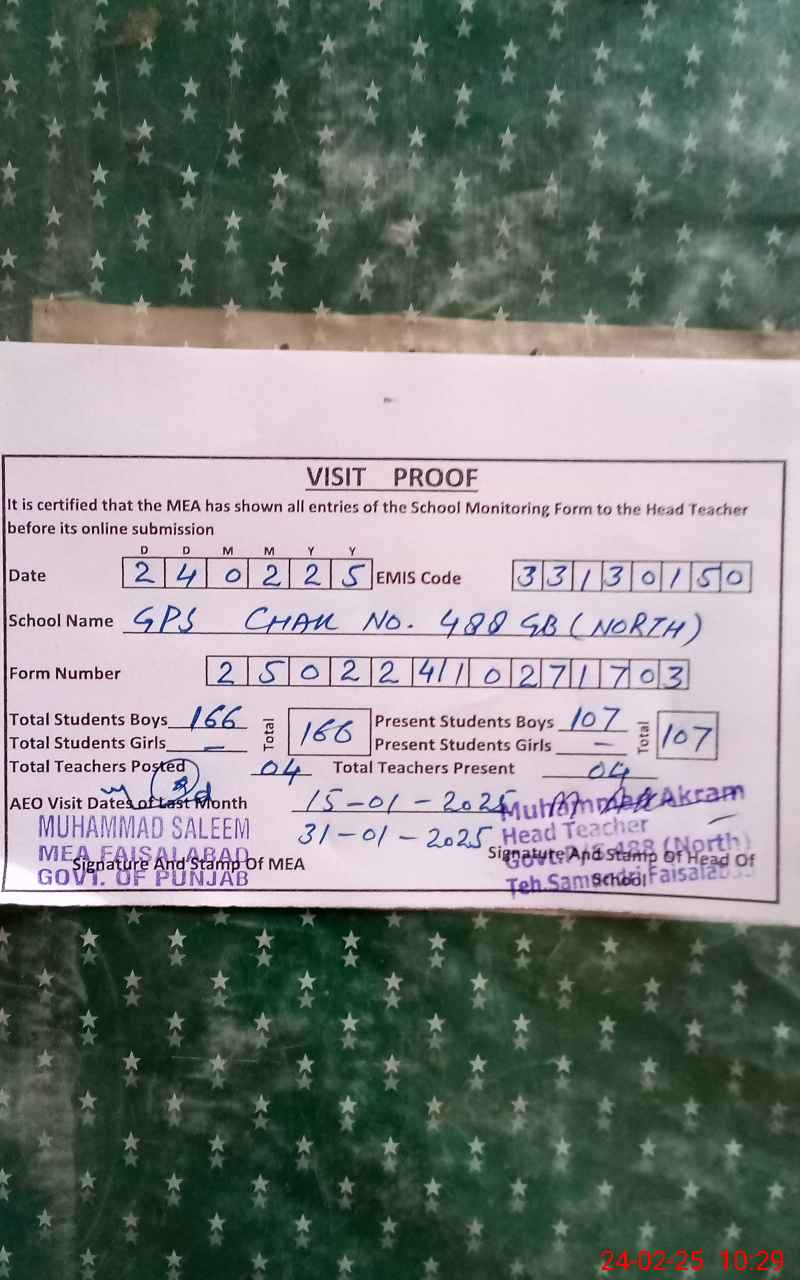 VISIT PROOF
It is certified that the MEA has shown all entries of the School Monitoring Form to the Head Teacher
before its online submission
D D M M Y Y
Date 2 4 0 2 2 5 EMIS Code 3 3 1 3 0 1 5 0
School Name GPS CHAK NO. 488 GB (NORTH)
Form Number 2 5 0 2 2 4 1 1 0 2 7 1 7 0 3
Total Students Boys 166 Total 166 Present Students Boys 107 Total 107
Total Students Girls — Present Students Girls —
Total Teachers Posted 04 Total Teachers Present 04
AEO Visit Dates of Last Month 15-01-2025
31-01-2025
MUHAMMAD SALEEM
MEA FAISALABAD
GOVT. OF PUNJAB
Signature And Stamp Of MEA
Muhammad Akram
Head Teacher
488 (North)
Teh.Samundri Faisalabad
Signature And Stamp Of Head Of
School
24-02-25 10:29